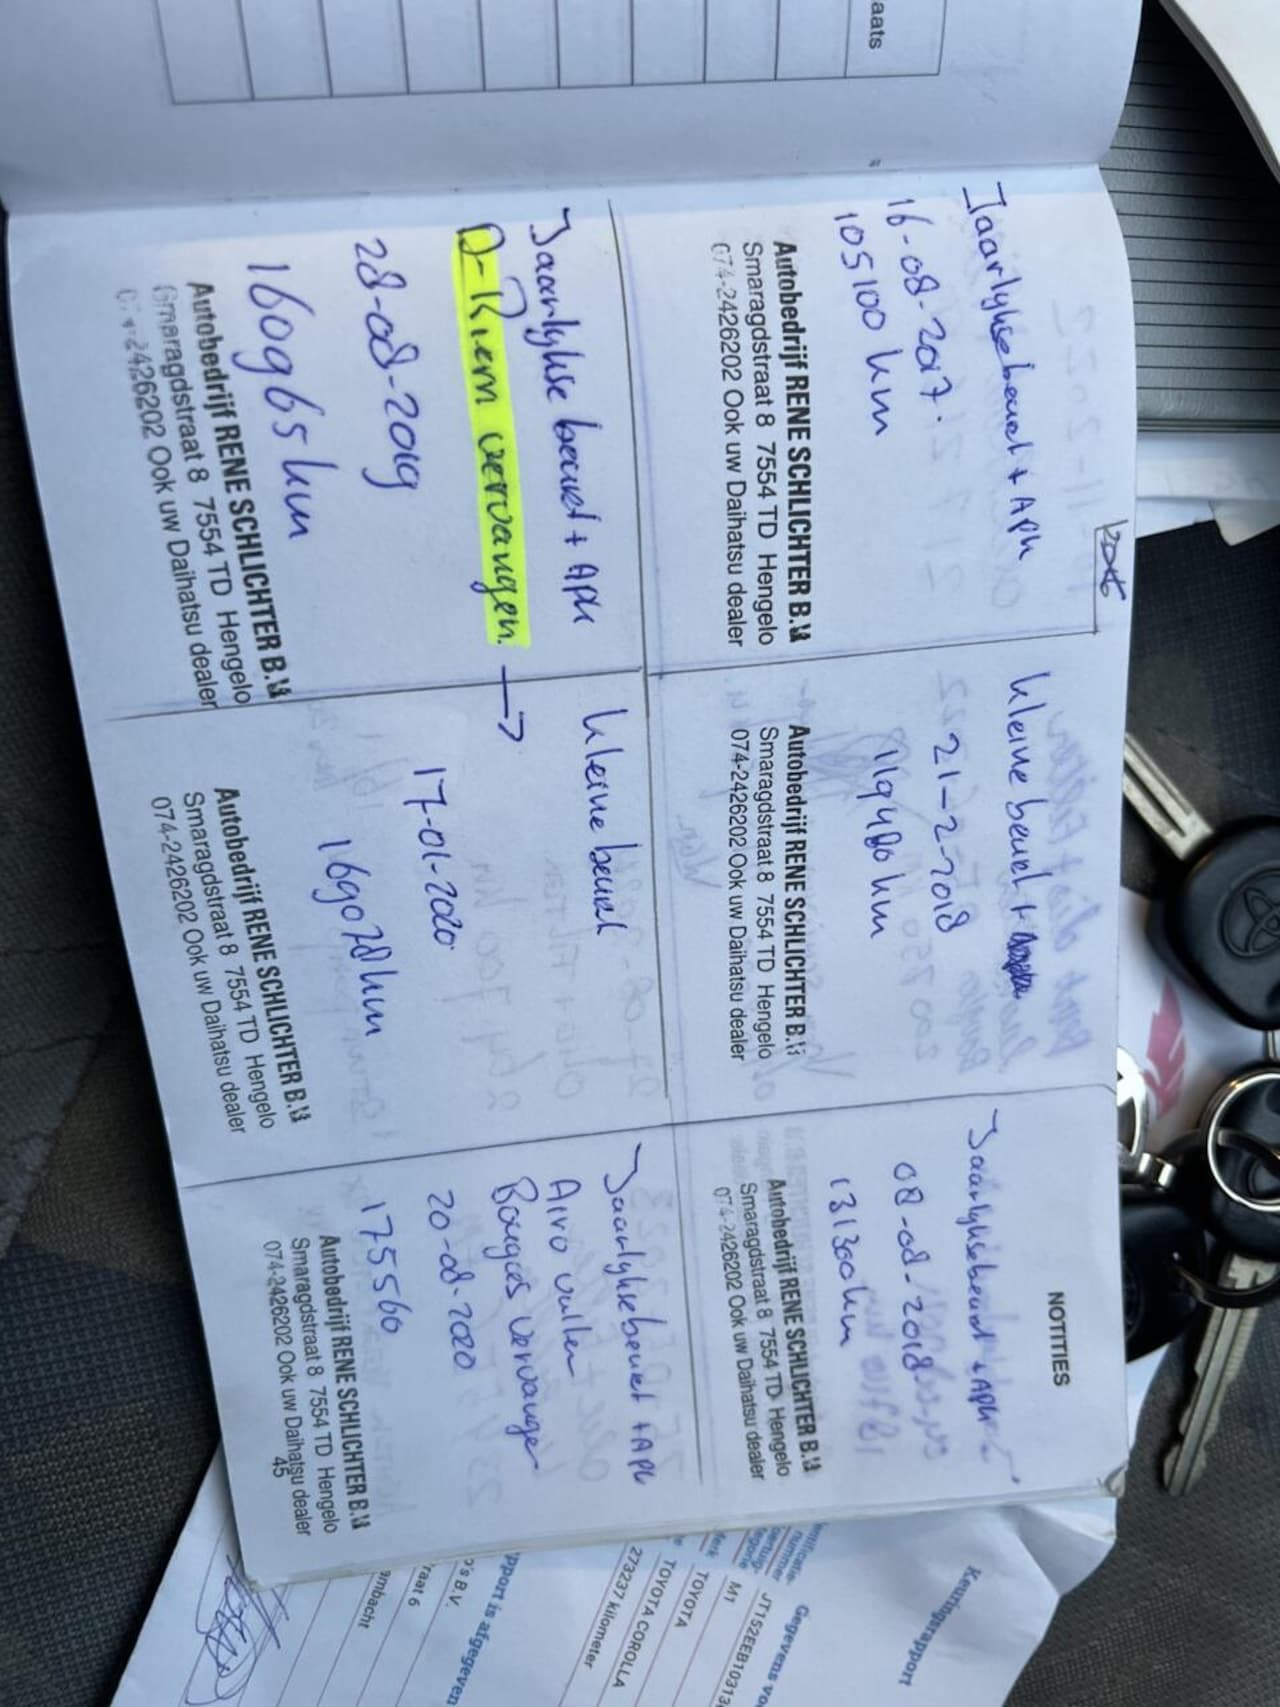 aats
NOTITIES
Jaarlijkse beurt + APK
16-08-2017.
105100 km
Autobedrijf RENE SCHLICHTER B.V.
Smaragdstraat 8 7554 TD Hengelo
074-2426202 Ook uw Daihatsu dealer
Kleine beurt +
21-2-2018
119480 km
Autobedrijf RENE SCHLICHTER B.V.
Smaragdstraat 8 7554 TD Hengelo
074-2426202 Ook uw Daihatsu dealer
Jaarlijkse beurt + APK
08-08-2018
131300 km
Autobedrijf RENE SCHLICHTER B.V.
Smaragdstraat 8 7554 TD Hengelo
074-2426202 Ook uw Daihatsu dealer
Jaarlijkse beurt + APK
D-Riem vervangen. →
28-08-2019
160965 km
Autobedrijf RENE SCHLICHTER B.V.
Smaragdstraat 8 7554 TD Hengelo
074-2426202 Ook uw Daihatsu dealer
Kleine beurt
17-01-2020
169078 km
Autobedrijf RENE SCHLICHTER B.V.
Smaragdstraat 8 7554 TD Hengelo
074-2426202 Ook uw Daihatsu dealer
Jaarlijkse beurt + APK
Airo vullen
Bougies vervangen
20-08-2020
175560
Autobedrijf RENE SCHLICHTER B.V.
Smaragdstraat 8 7554 TD Hengelo
074-2426202 Ook uw Daihatsu dealer
45
Keuringsrapport
Gegevens vo
JT152EEB10313
M1
TOYOTA
TOYOTA COROLLA
273237 kilometer
pport is afgegeven
's B.V.
raat 6
ambacht